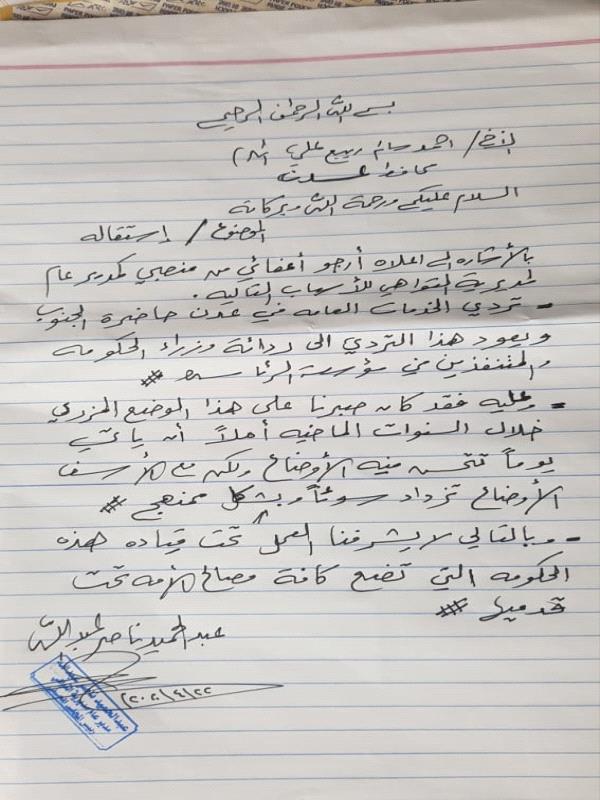 بسم الله الرحمن الرحيم
الأخ/ احمد سالم ربيع علي
محافظ عدن
السلام عليكم ورحمة الله وبركاته
الموضوع/ إستقاله
بالأشاره الى اعلاه أرجو أعفائي من منصبي كمدير عام
لمديرية التواهي للأسباب التاليه.
- تردي الخدمات العامه في عدن حاضرة الجنوب
ويعود هذا التردي الى ردائة وزراء الحكومه
والمتنفذين في مؤسسة الرئاسه #
- وعليه فقد كان صبرنا على هذا الوضع المزري
خلال السنوات الماضيه أملاً أن يأتي
يوماً تتحسن فيه الأوضاع ولكن مع الأسف
الأوضاع تزداد سوئاً وبشكل ممنهج #
- وبالتالي لا يشرفنا العمل تحت قياده هذه
الحكومه التي تضع كافة مصالح الأمه تحت
قدميها #
عبدالحميد ناصر